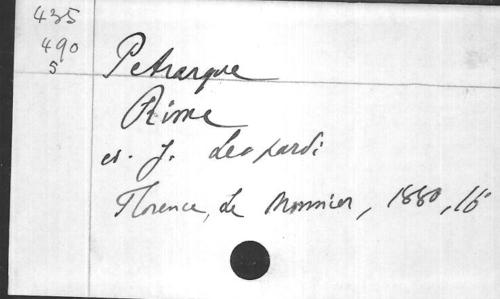 435
490
5
Petrarque
Rime
ed. J. Leopardi
Florence, Le Monnier, 1880, 16°